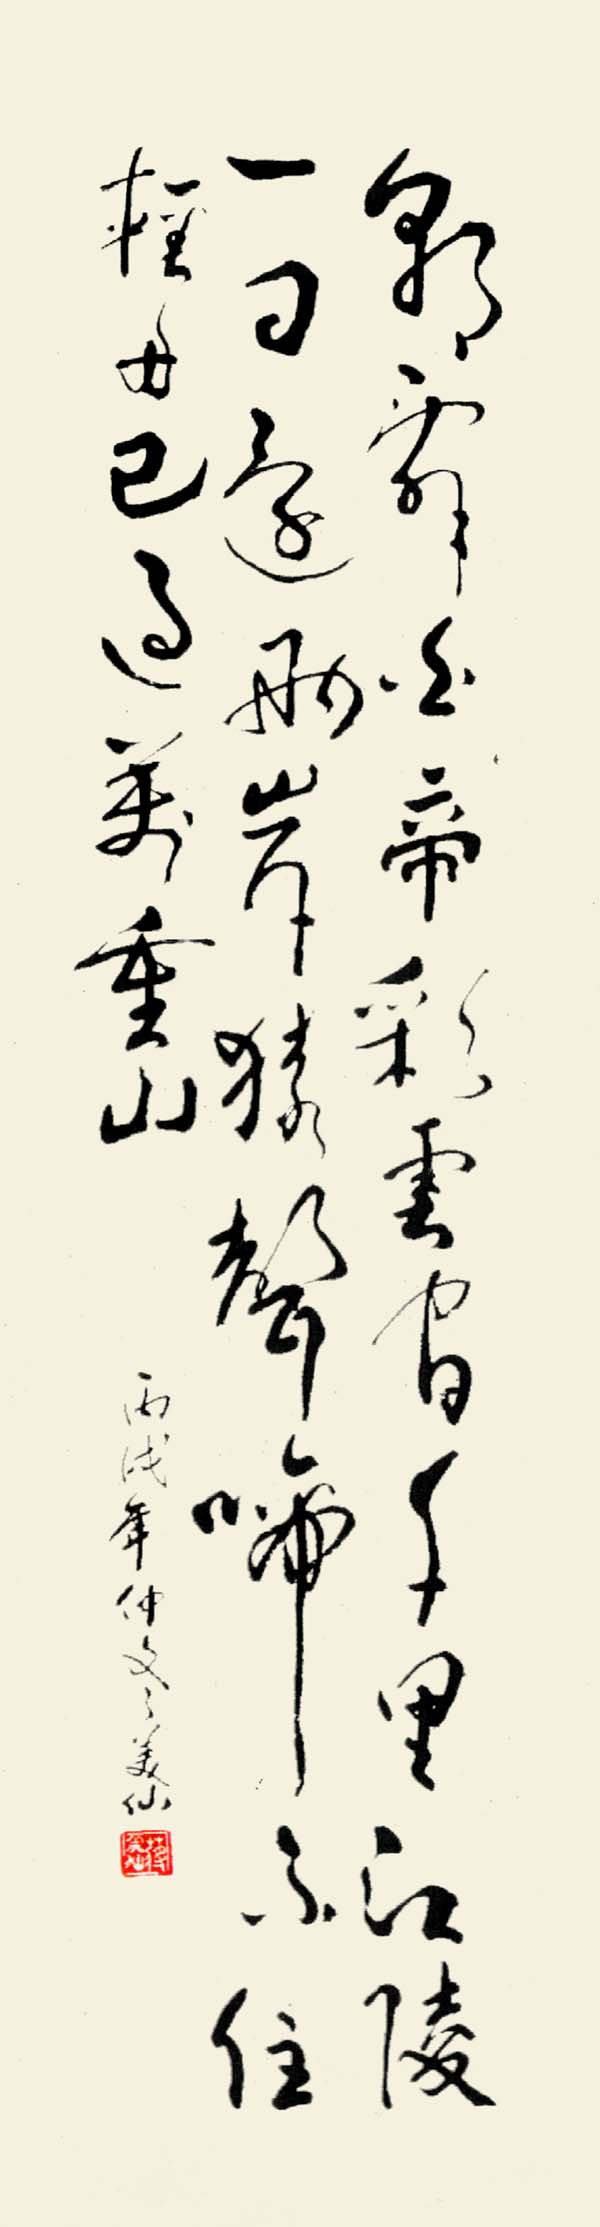 朝辭白帝彩雲間千里江陵
一日還兩岸猿聲啼不住
輕舟已過萬重山
丙戌年仲冬美仙